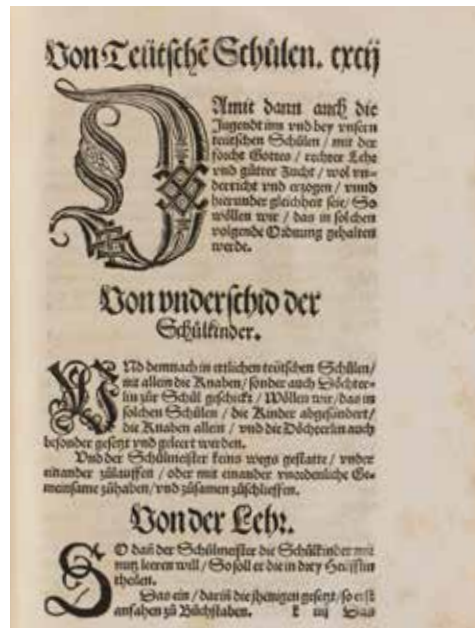 Von Teütschẽ Schůlen. cxcij
DAmit dann auch die
Jugendt inn vnd bey vnsern
teütschen Schůlen / mit der
forcht Gottes / rechter Lehr
vnd gůtter Zucht / wol vn-
derricht vnd erzogen / vnnd
hierunder gleichheit seie / So
wöllen wir / das in solchen
volgende Ordnung gehalten
werde.
Von vnderschid der
Schůlkinder.
VNd demnach in ettlichen teütschen Schůlen /
nit allein die Knaben / sonder auch Döchter-
lin zůr Schůl geschickt / Wöllen wir / das in
solchen Schůlen / die Kinder abgesündert /
die Knaben allein / vnd die Döchterlin auch
besonder gesetzt vnd geleert werden.
Vnd der Schůlmeister keins wegs gestatte / vnder
einander zůlauffen / oder mit einander vnordenliche Ge-
meinsame zůhaben / vnd zůsamen zůschlieffen.
Von der Lehr.
SO dañ der Schůlmeister die Schůlkinder mit
nutz leeren will / So soll er die in drey Heüfflin
theilen.
Das ein / dariñ die jhenigen gesetzt / so erst
anfahen zů Bůchstaben.
k iiij Das